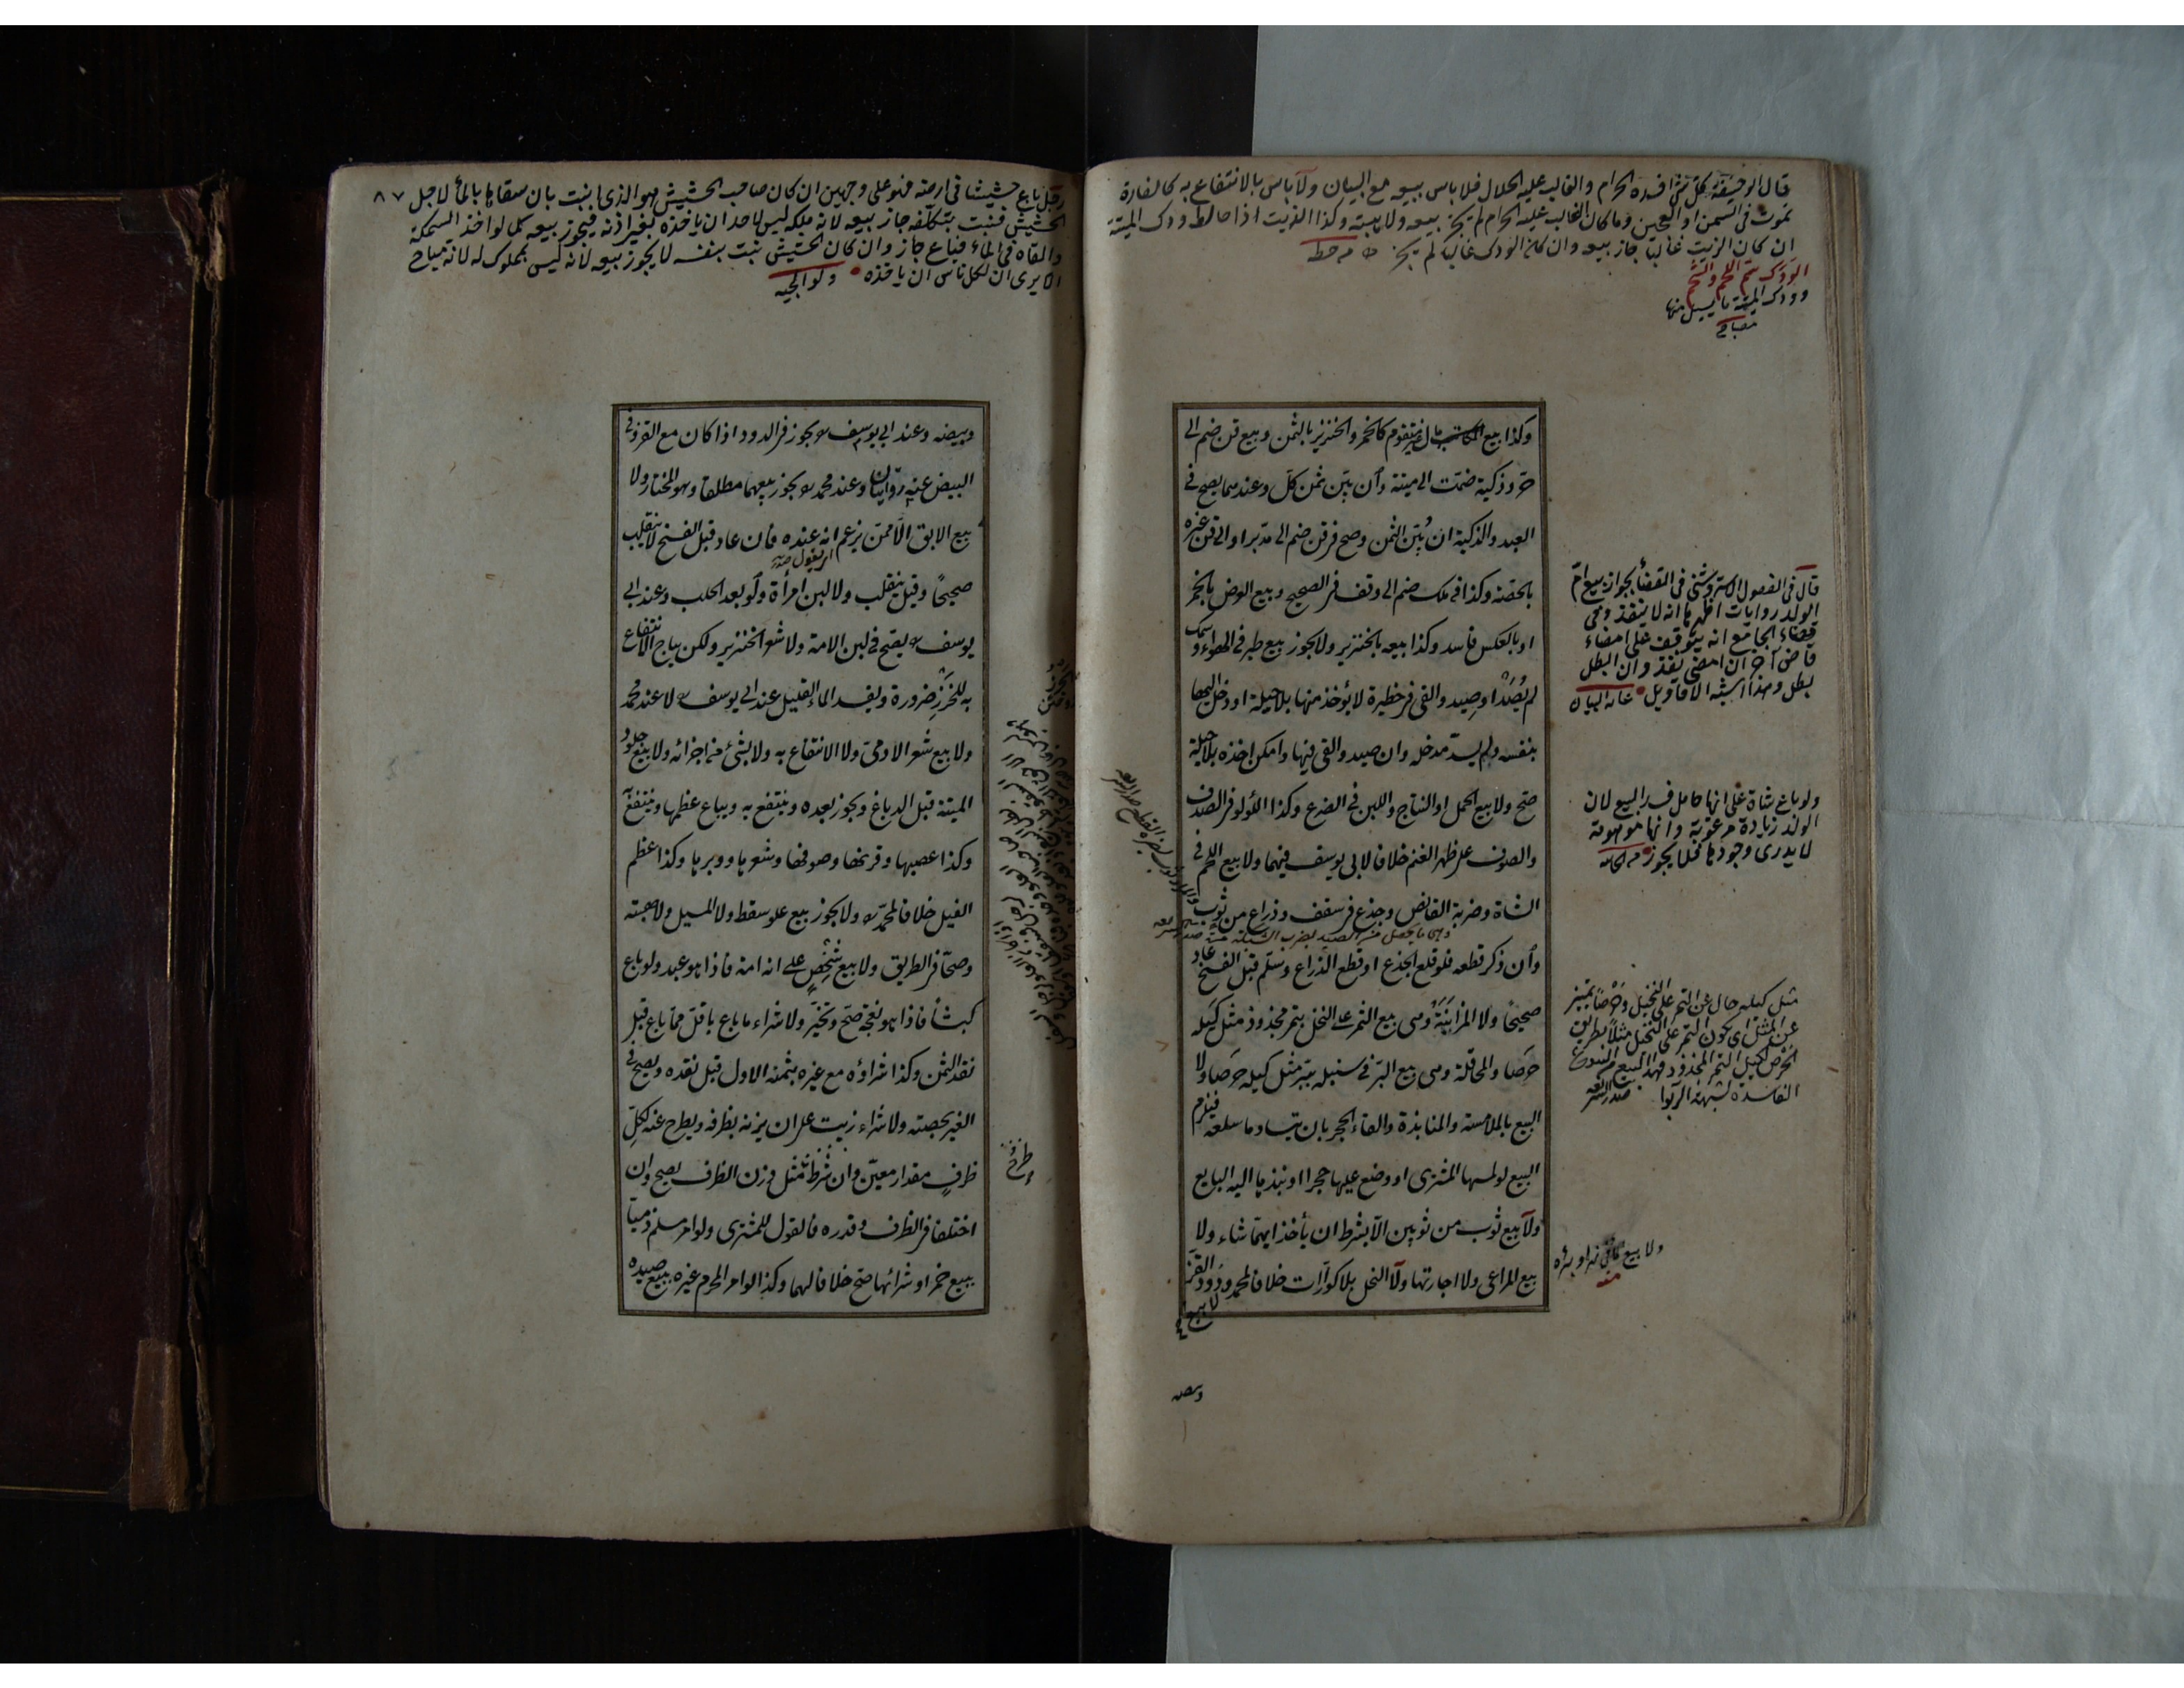 قال ابو حنيفة كل شئ افسده الحرام والغالب عليه الحلال فلا باس ببيعه مع البيان ولا باس بالانتفاع به كالفارة
تموت فى السمن او العجين وما كان الغالب عليه الحرام لم يجز بيعه ولا هبته وكذا الزيت اذا خالط ودك الميتة
ان كان الزيت غالبا جاز بيعه وان كان الودك غالبا لم يجز
الودك دسم اللحم والشحم
وودك الميتة ما يسيل منها
وكذا بيع مال غير متقوم كالخمر والخنزير بالثمن وبيع قن ضم الى
حر وذكية ضمت الى ميتة وان بين ثمن كل وعندهما يصح فى
العبد والذكية ان بين الثمن وصح فى قن ضم الى مدبر او الى قن غيره
بالحصة وكذا فى ملك ضم الى وقف فى الصحيح وبيع العرض بالخمر
او بالعكس فاسد وكذا بيعه بالخنزير ولا يجوز بيع طير فى الهواء وسمك
لم يصد او صيد والقى فى حظيرة لا يؤخذ منها بلا حيلة او دخل اليها
بنفسه ولم يسد مدخله وان صيد والقى فيها وامكن اخذه بلا حيلة
صح ولا بيع الحمل او النتاج واللبن فى الضرع وكذا اللؤلؤ فى الصدف
والصوف على ظهر الغنم خلافا لابى يوسف فيهما ولا بيع اللحم فى
الشاة وضربة القانص وجذع فى سقف وذراع من ثوب
وهى ما يحصل من الصيد بضرب الشبكة
وان ذكر قطعه فلو قلع الجذع او قطع الذراع وسلم قبل الفسخ عاد
صحيحا ولا المزابنة وهى بيع الثمر على النخل بتمر مجذوذ مثل كيله
خرصا والمحاقلة وهى بيع البر فى سنبله ببر مثل كيله خرصا ولا
البيع بالملامسة والمنابذة والقاء الحجر بان يتساوما سلعه فيلزم
البيع لو لمسها المشترى او وضع عليها حجرا او نبذها اليه البايع
ولا بيع ثوب من ثوبين الا بشرط ان ياخذ ايهما شاء ولا
بيع المراعى ولا اجارتها ولا النحل بلا كوارات خلافا لمحمد ودود القز
لا بيع
وبيضه
قال فى الفصول الاستروشنى فى القضاء بجواز بيع ام
الولد روايات اظهرها انه لا ينفذ وفى
قضاء الجامع انه يتوقف على امضاء
قاض آخر ان امضى نفذ وان ابطل
بطل وهذا اشبه الاقاويل غاية البيان
ولو باع شاة على انها حامل فسد البيع لان
الولد زيادة مرغوبة وانها موهومة
لا يدرى وجودها فلا يجوز
مثل كيله حال من التمر على النخيل وخرصا تمييز
عن المثل اى يكون التمر على النخيل مثلا بطريق
الخرص لكيل التمر المجذوذ فهذا البيع من البيوع
الفاسدة لشبهة الربوا صدر الشريعه
٨٧
رجل باع حشيشا فى ارضه فهو على وجهين ان كان صاحب الحشيش هو الذى انبت بان سقاها بالماء لاجل
الحشيش فنبت بتكلفه جاز بيعه لانه ملكه ليس لاحد ان ياخذه بغير اذنه فيجوز بيعه كما لو اخذ السمكة
والقاه فى الماء فباع جاز وان كان الحشيش نبت بنفسه لا يجوز بيعه لانه ليس بمملوك له لانه مباح
الا يرى ان لكل ناس ان ياخذه ولوالجيه
وبيضه وعند ابى يوسف يجوز فى الدود اذا كان مع القز وفى
البيض عنه روايتان وعند محمد يجوز بيعهما مطلقا وهو المختار ولا
بيع الابق الا ممن يزعم انه عنده فان عاد قبل الفسخ لا ينقلب
صحيحا وقيل ينقلب ولا لبن امرأة ولو بعد الحلب وعند ابى
يوسف يصح فى لبن الامة ولا شعر الخنزير ولكن يباح الانتفاع
به للخرز ضرورة ويفسد الماء القليل عند ابى يوسف لا عند محمد
ولا بيع شعر الادمى ولا الانتفاع به ولا بشئ من اجزائه ولا بيع جلود
الميتة قبل الدباغ ويجوز بعده وينتفع به ويباع عظمها وينتفع به
وكذا عصبها وقرنها وصوفها وشعرها ووبرها وكذا عظم
الفيل خلافا لمحمد ولا يجوز بيع علو سقط ولا المسيل ولا هبته
وصحا فى الطريق ولا بيع شخص على انه امة فاذا هو عبد ولو باع
كبشا فاذا هو نعجة صح وتخير ولا شراء ما باع باقل مما باع قبل
نقد الثمن وكذا شراؤه مع غيره بثمنه الاول قبل نقده ويصح فى
الغير بحصته ولا شراء زيت على ان يزنه بظرفه ويطرح عنه لكل
ظرف مقدار معين وان شرط مثل وزن الظرف يصح وان
اختلفا فى الظرف وقدره فالقول للمشترى ولو امر مسلم ذميا
ببيع خمر او شرائها صح خلافا لهما وكذا لو امر المحرم غيره ببيع صيده